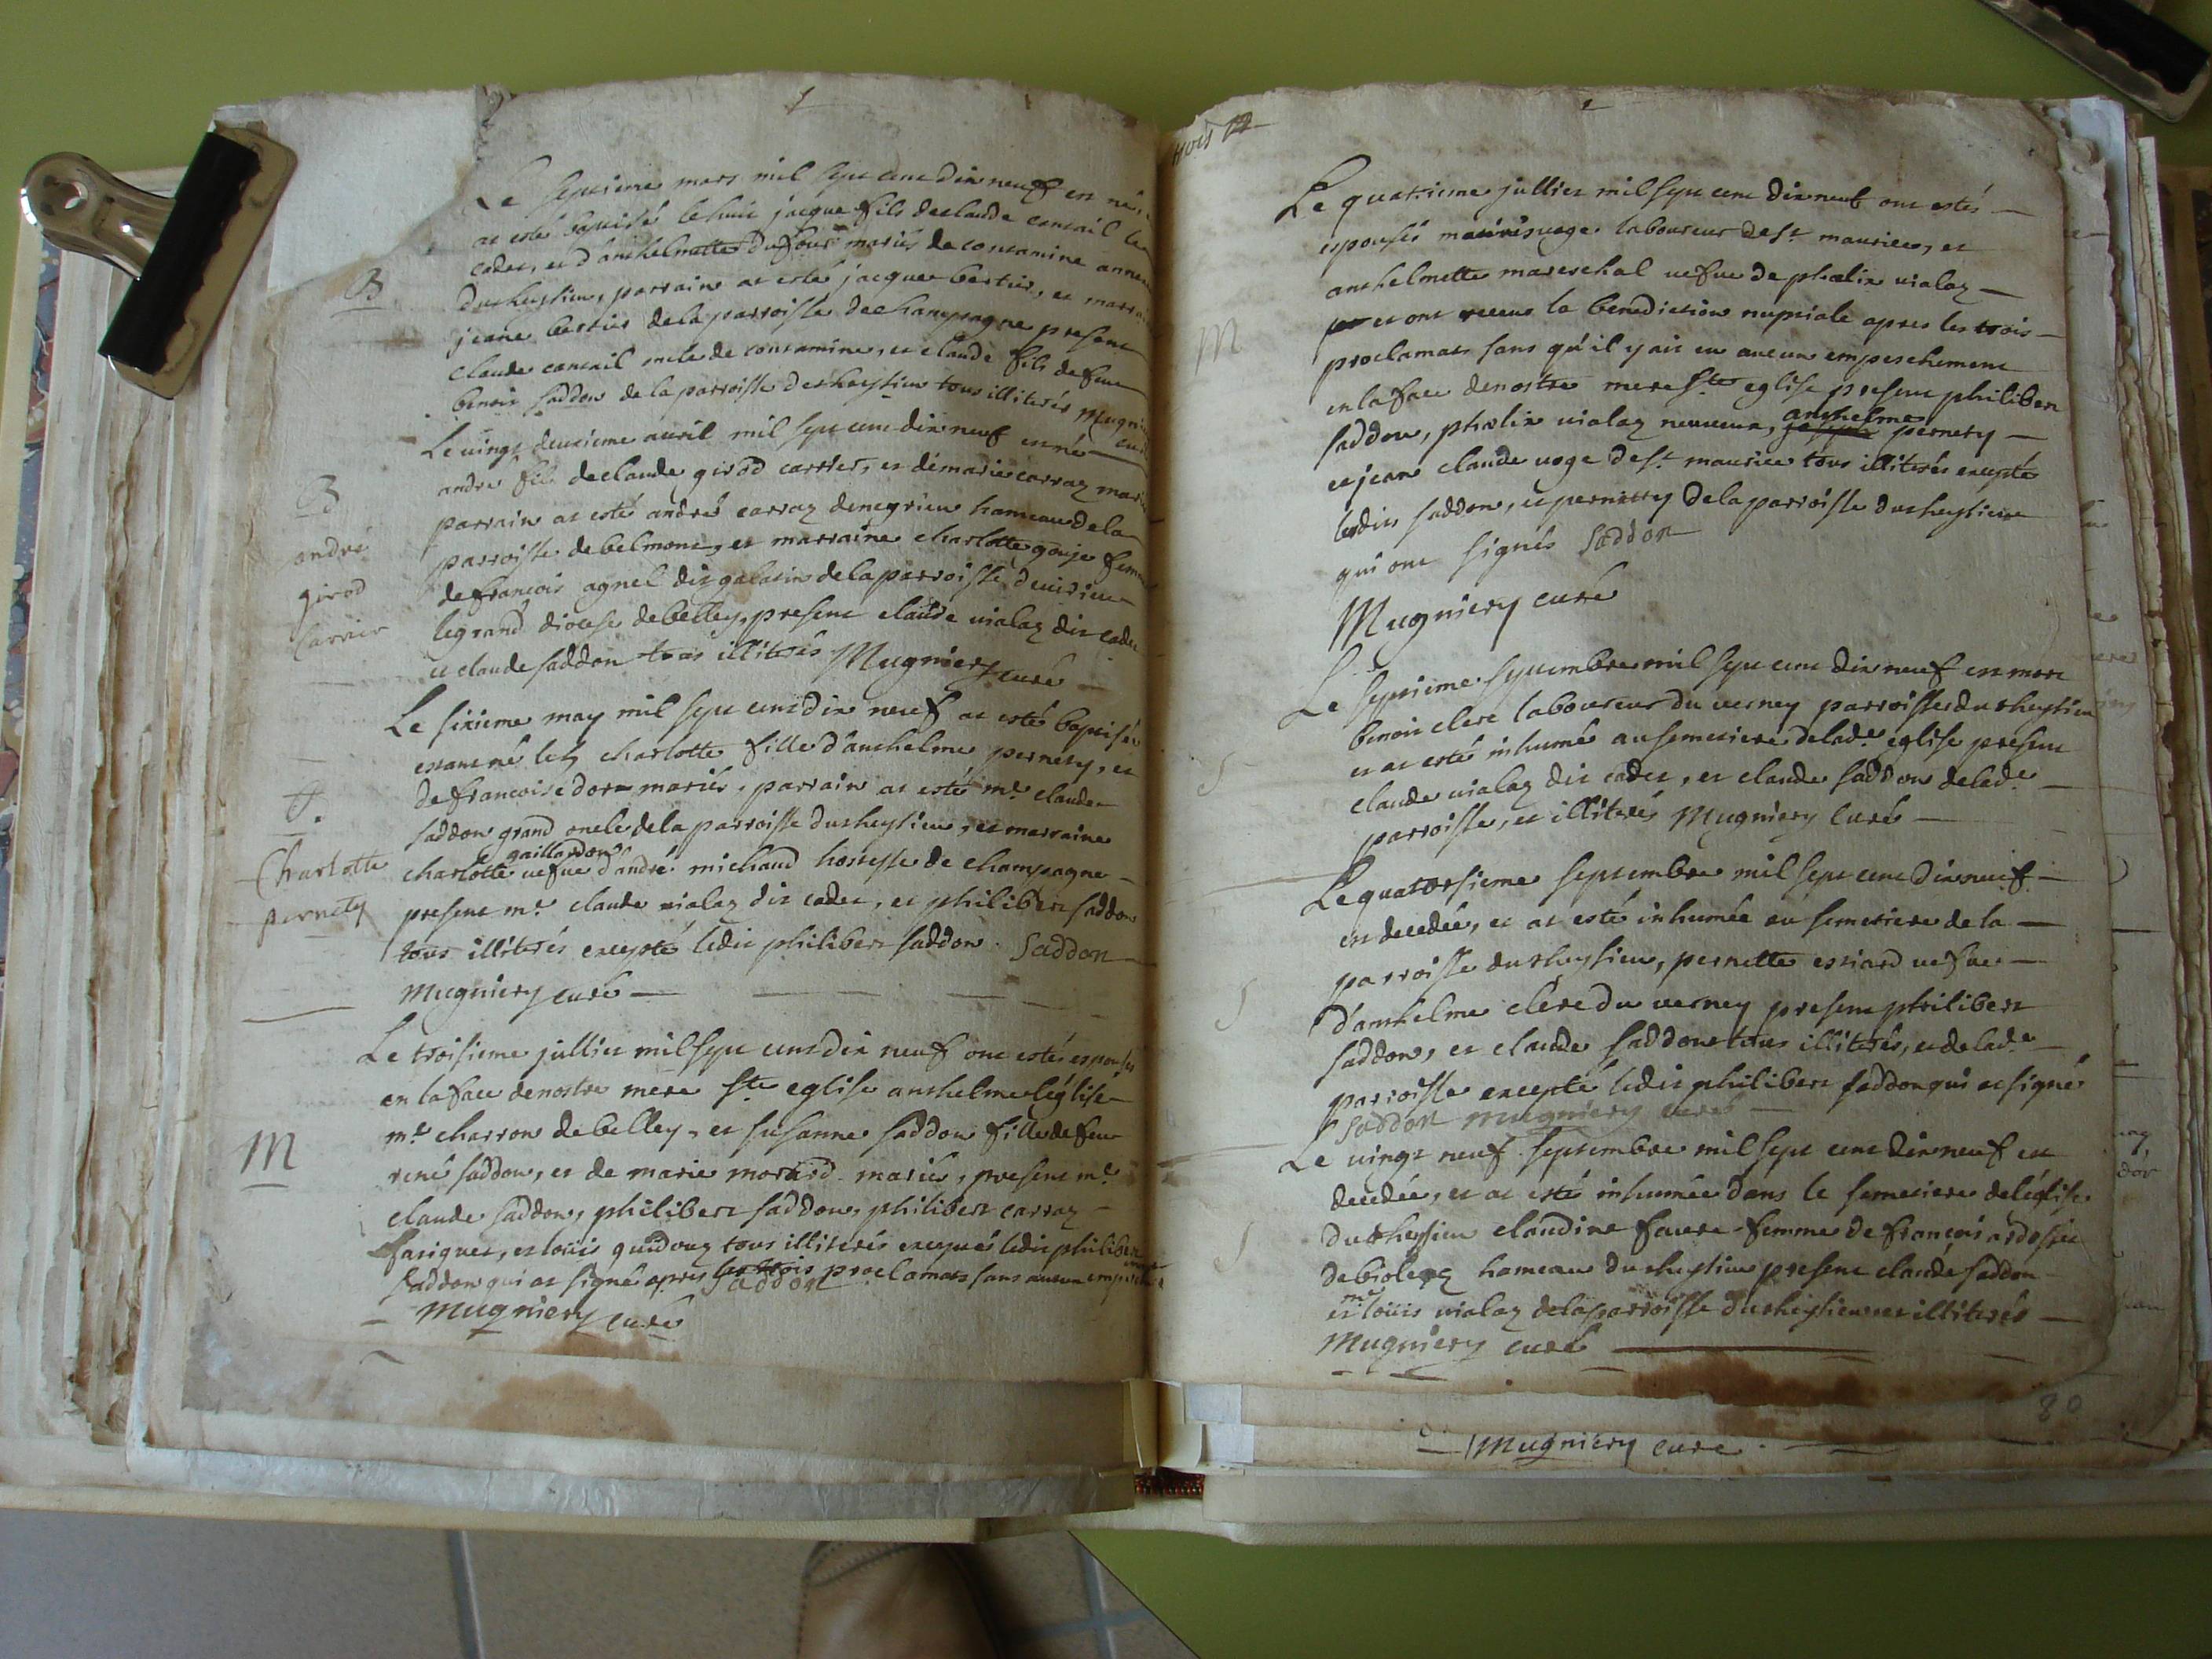 Le septieme mars mil sept cent dix neuf est né,
at esté baptisé le huit jacque fils de claude cantail
cadet, et d'anthelmette dufour mariés de contamine
B
du cheysieu, parrain at esté jacque bertier, et
jeane bertier de la parroisse de champagne present
claude cantail mele de contamine, et claude fils de feu
benoit saddon de la parroisse de cheysieu tous illiterés
Le vingt deuxieme avril mil sept cent dix neuf est né
andré fils de claude girod carrier, et de marie carraz
B
andré
girod
Carrier
parrain at esté andré carraz de neyrieu hameau de la
parroisse de belmont, et marraine charlotte gouje
de francois agnel dit galatin de la parroisse de virieu
le grand diocese de belley, present claude vialaz dit cadet
et claude saddon tous illiterés Mugniery curé
Le sixieme may mil sept cent dix neuf at esté baptisée
estant né le charlotte fille d'anthelme pernety, et
de francoise dor mariés, parrain at esté me. claude
saddon grand oncle de la parroisse du cheysieu, et marraine
gaillardon
charlotte vefve d'andré michaud hostesse de champagne
Charlotte
pernety
present me. claude vialaz dit cadet, et philibert saddon
tous illiterés excepté ledit philibert saddon. Saddon
Mugniery curé
Le troisieme jullier mil sept cent dix neuf ont estés espousés
en la face de nostre mere ste eglise anthelme léglise
M
me charron de belley, et susanne saddon fille de feu
rené saddon, et de marie morard mariés, present me
claude saddon, philibert saddon, philibert carraz
fariguet, et louis quidouz tous illiterés exceptés ledit philibert
saddon qui at signé apres les trois proclamats sans aucun
Saddon
Mugniery curé
trois
Le quatrieme jullier mil sept cent dix neuf ont estés
espousés voge laboureur de st maurice, et
anthelmette mareschal vefve de phœlix vialaz
M
et ont receu la benediction nuptiale apres les trois
proclamats sans qu'il y ait eu aucun empeschement
en la face de nostre mere ste eglise present philibert
saddon, phœlix vialaz anthelme pernety
et jean claude voge de st maurice tous illiterés excepté
lesdits saddon, et pernetty de la parroisse du cheysieu
qui ont signés Saddon
Mugniery curé
Le septieme septembre mil sept cent dix neuf est mort
benoit clerc laboureur du verney parroisse du cheysieu
S
et at esté inhumé au semetiere de lade. eglise present
claude vialaz dit cadet, et claude saddon de lade.
parroisse, et illiterés Mugniery Curé
Le quatorsieme septembre mil sept cent dix neuf
est decedée, et at esté inhumée au semetiere de la
parroisse du cheysieu, pernette estiard vefve
S
d'anthelme clerc du verney present philibert
saddon, et claude saddon tous illiterés, et de lade
parroisse excepté ledit philibert saddon qui at signé
Saddon Mugniery curé
Le vingt neuf septembre mil sept cent dix neuf est
decedée, et at esté inhumée dans le semetiere de léglise
S
du cheysieu claudine favre femme de francois
de hameau du cheysieu present claude saddon
et me louis vialaz de la parroisse du cheysieu et illiterés
Mugniery curé
80
Mugniery curé